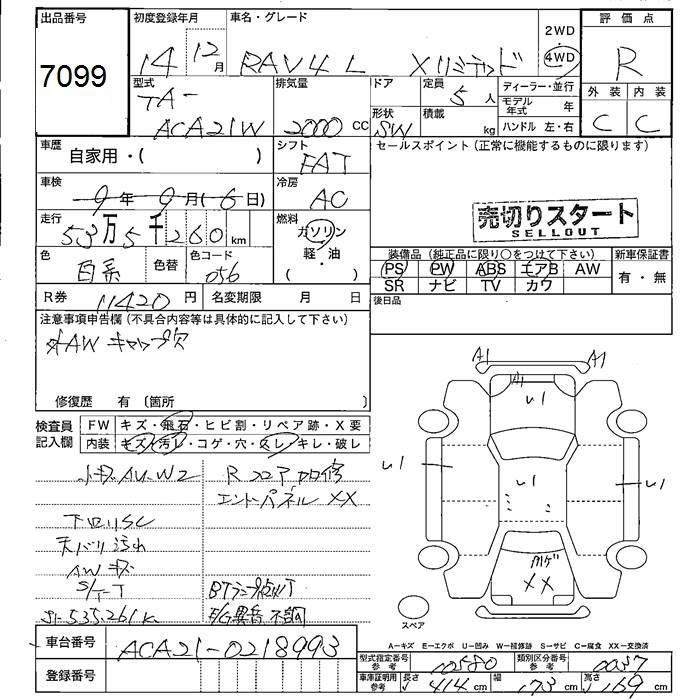 出品番号 初度登録年月 車名・グレード 2WD 評価点
7099 14 12月 RAV4 L Xリミテッド 4WD R
型式 排気量 ドア 定員 5人 ディーラー・並行 外装 内装
TA- モデル年式 年
ACA21W 2000 CC 形状 SW 積載 kg ハンドル 左・右 C C
車歴 自家用・( ) シフト FAT セールスポイント(正常に機能するものに限ります)
車検 9年 9月(6日) 冷房 AC
売切りスタート
SELLOUT
走行 53万5千260km 燃料 ガソリン
軽・油
( )
色 白系 色替 色コード 056
装備品(純正品に限り○をつけて下さい) 新車保証書
PS PW ABS エアB AW 有・無
SR ナビ TV カワ
R券 11420円 名変期限 月 日 後日品
注意事項申告欄(不具合内容等は具体的に記入して下さい)
AW キャップ欠
修復歴 有 〔箇所 〕
検査員 FW キズ・飛石・ヒビ割・リペア跡・X要
記入欄 内装 キズ・汚レ・コゲ・穴・スレ・キレ・破レ
A1 A1
A1 U1
U1 U1 U1
XX
小キズAU.W2 Rコア
エンドパネル XX
下回りSC
天バリ汚れ
AWキズ
S/T-T
535261K E/G異音 不調
スペア
A-キズ E-エクボ U-凹み W-補修跡 S-サビ C-腐食 XX-交換済
車台番号 ACA21-0218993
型式指定番号 参考 10580 類別区分番号 参考 0037
登録番号
車庫証明用 参考 長さ 414cm 幅 173cm 高さ 169cm